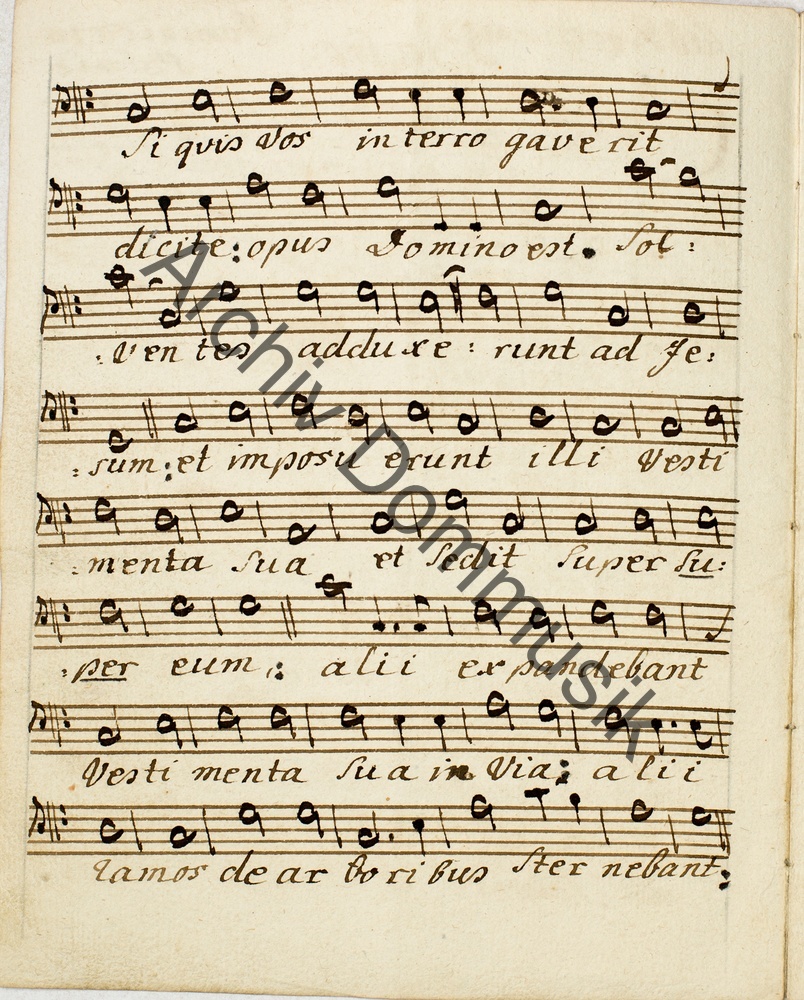 Si quis vos in terro gave rit
dicite: opus Domino est. Sol:
:ven tes addu xe: runt ad Je:
:sum: et imposu erunt illi Vesti
:menta sua et sedit super su:
:per eum: alii expandebant
Vesti menta sua in via: alii
ramos de ar bo ri bus ster nebant:
Archiv Dommusik